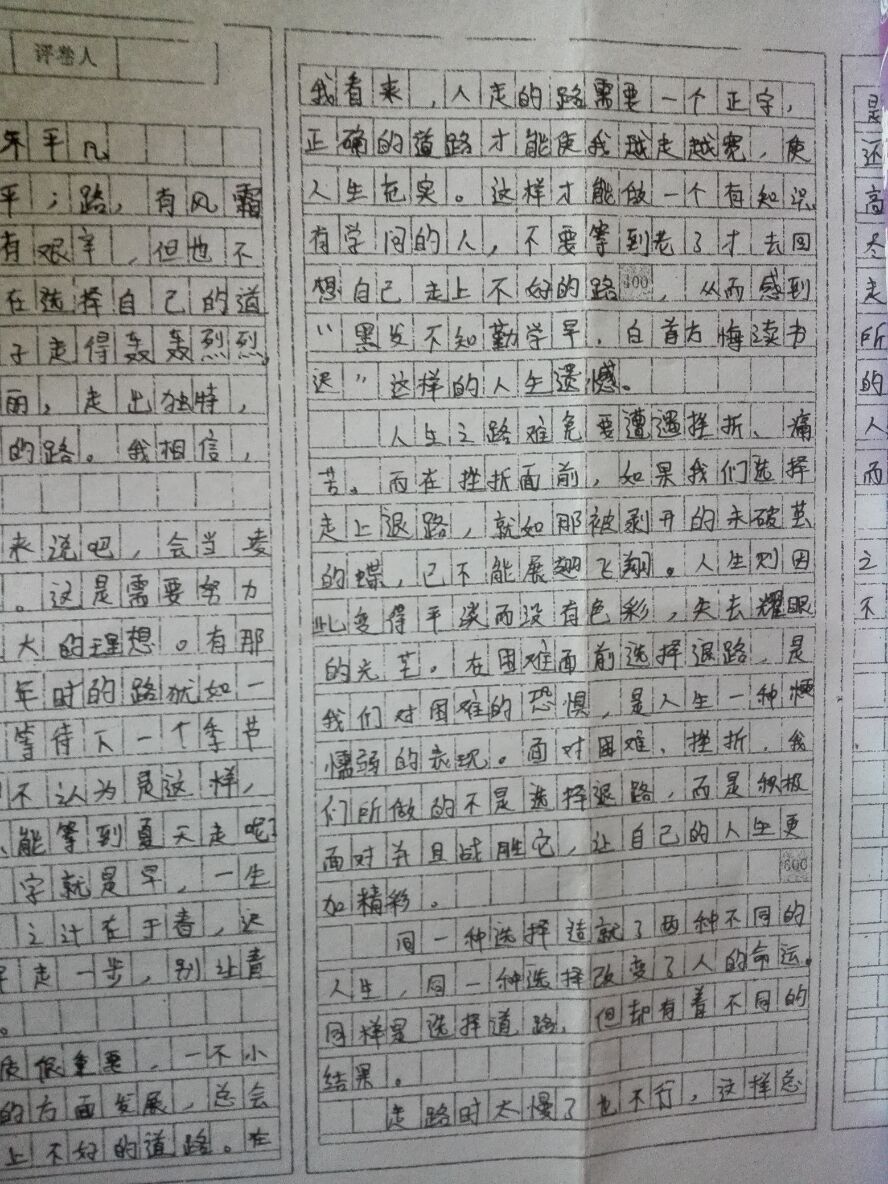 评卷人
年平凡
平；路，有风霜
有艰辛，但也不
在选择自己的道
子走得轰轰烈烈，
丽，走出独特，
的路。我相信，
来说吧，会当凌
。这是需要努力
大的理想。有那
年时的路犹如一
等待下一个季节
不认为是这样，
能等到夏天走呢？
字就是早，一生
之计在于春，迟
早走一步，别让青
。
质很重要，一不小
的方面发展，总会
上不好的道路。在
我看来，人走的路需要一个正字，
正确的道路才能使我越走越宽，使
人生充实。这样才能做一个有知识
有学问的人，不要等到老了才去回
想自己走上不好的路400，从而感到
“黑发不知勤学早，白首方悔读书
迟”这样的人生遗憾。
人生之路难免要遭遇挫折、痛
苦。而在挫折面前，如果我们选择
走上退路，就如那被剥开的未破茧
的蝶，已不能展翅飞翔。人生则因
此变得平淡而没有色彩，失去耀眼
的光芒。在困难面前选择退路，是
我们对困难的恐惧，是人生一种
懦弱的表现。面对困难、挫折，我
们所做的不是选择退路，而是积极
面对并且战胜它，让自己的人生更
600
加精彩。
同一种选择造就了两种不同的
人生，同一种选择改变了人的命运。
同样是选择道路，但却有着不同的
结果。
走路时太慢了也不行，这样总
是
还
高
走
所
的
人
而
之
不